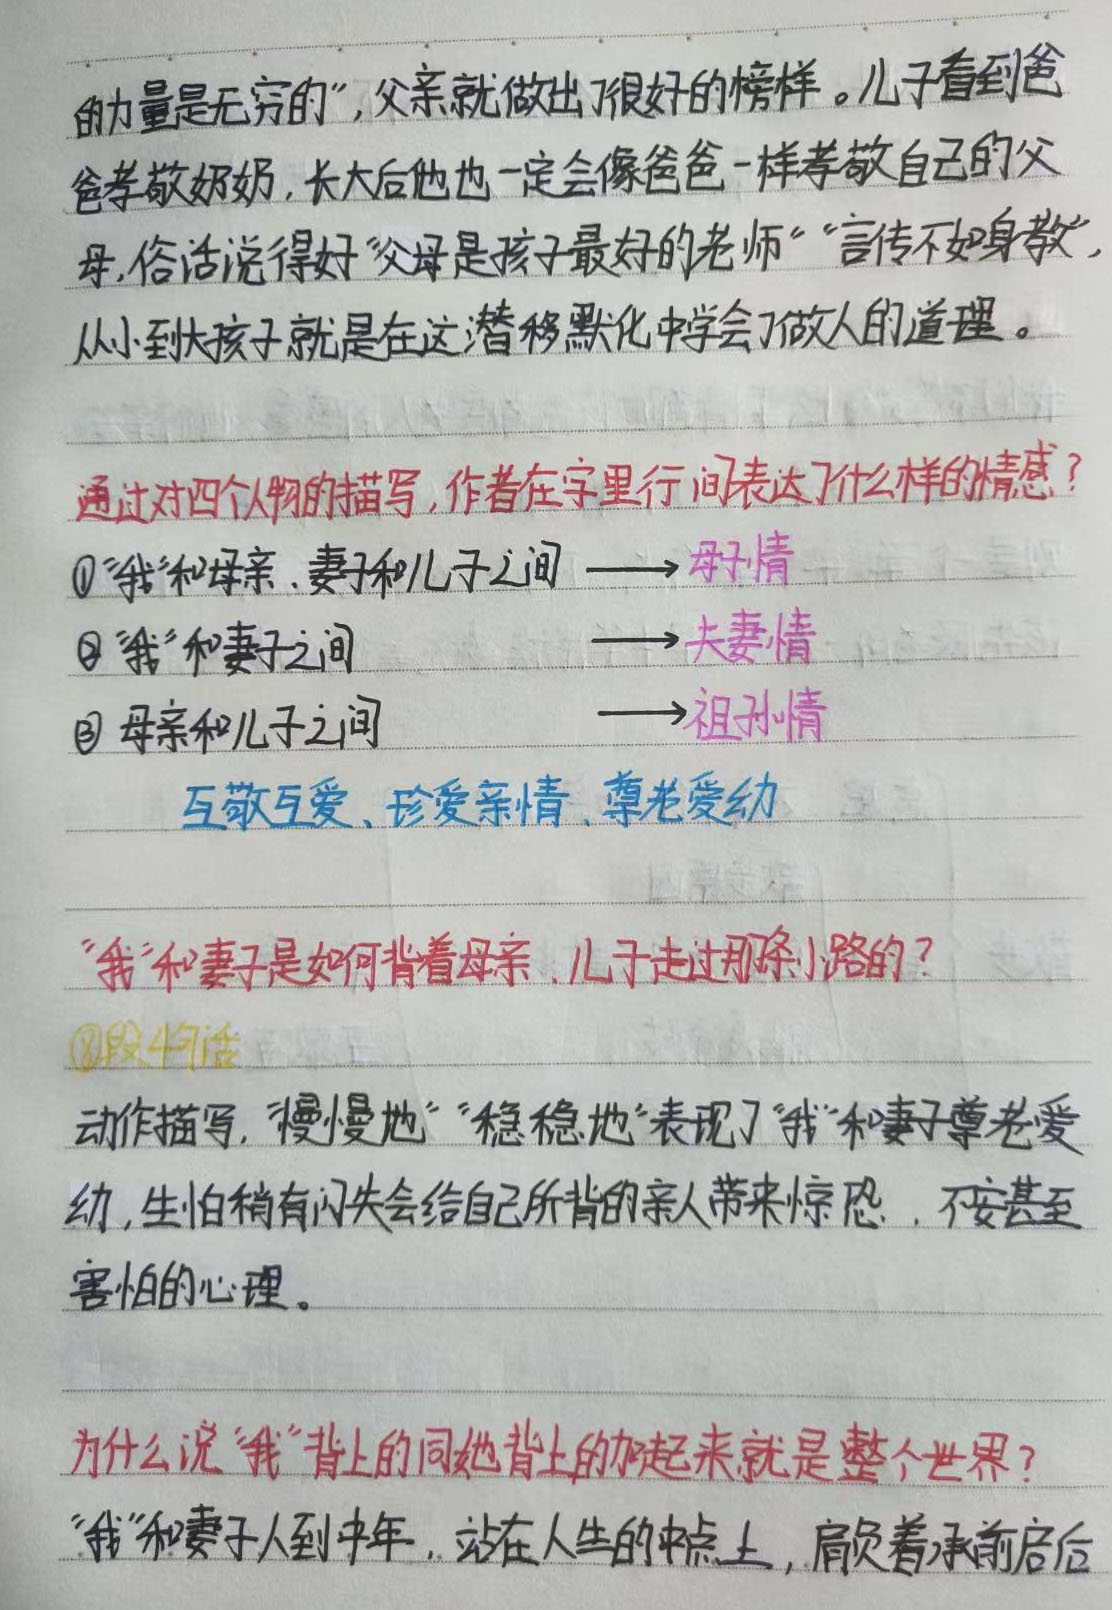 的力量是无穷的”，父亲就做出了很好的榜样。儿子看到爸
爸孝敬奶奶，长大后他也一定会像爸爸一样孝敬自己的父
母，俗话说得好“父母是孩子最好的老师”“言传不如身教”，
从小到大孩子就是在这潜移默化中学会了做人的道理。
通过对四个人物的描写，作者在字里行间表达了什么样的情感？
①“我”和母亲、妻子和儿子之间 → 母子情
②“我”和妻子之间 → 夫妻情
③ 母亲和儿子之间 → 祖孙情
互敬互爱、珍爱亲情、尊老爱幼
“我”和妻子是如何背着母亲、儿子走过那条小路的？
⑧段
动作描写，“慢慢地”“稳稳地”表现了“我”和妻子尊老爱
幼，生怕稍有闪失会给自己所背的亲人带来惊恐、不安甚至
害怕的心理。
为什么说“我”背上的同她背上的加起来就是整个世界？
“我”和妻子人到中年，站在人生的中点上，肩负着承前启后